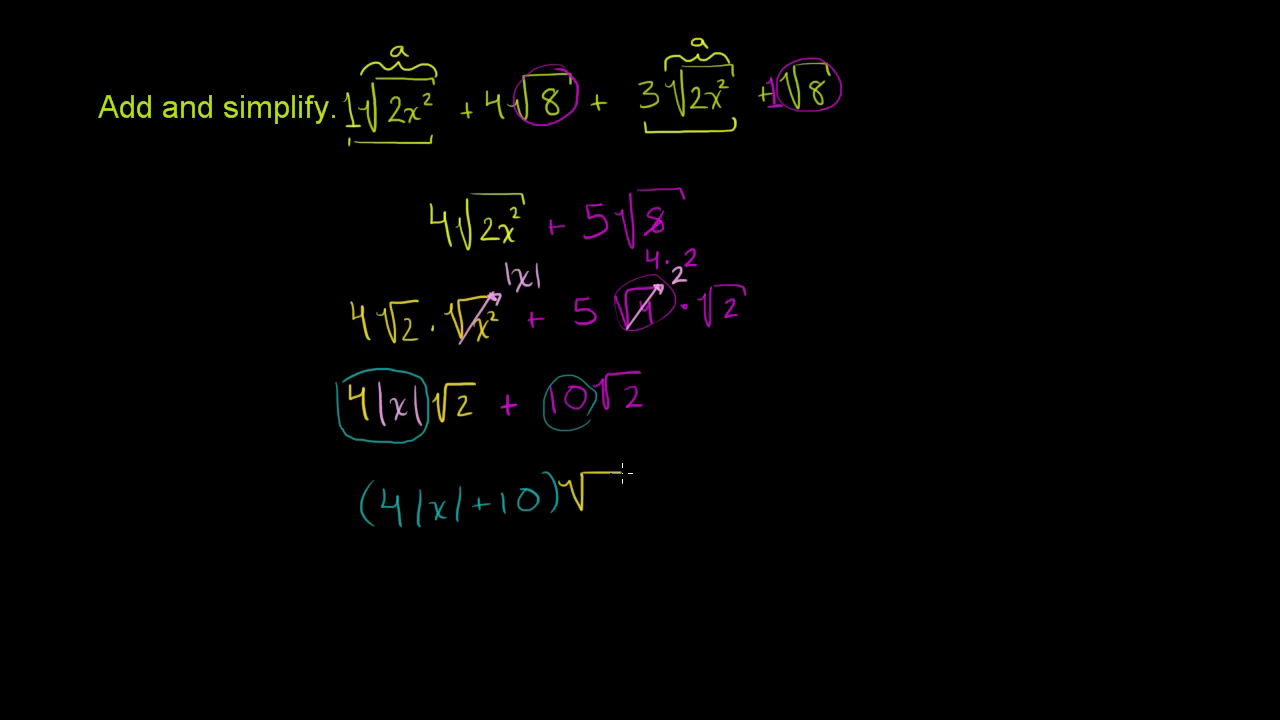 a a
Add and simplify. 1√2x² + 4√8 + 3√2x² + 1√8
4√2x² + 5√8
4 · 2
|x| 2
4√2 · √x² + 5√4 · √2
4|x|√2 + 10√2
(4|x|+10)√